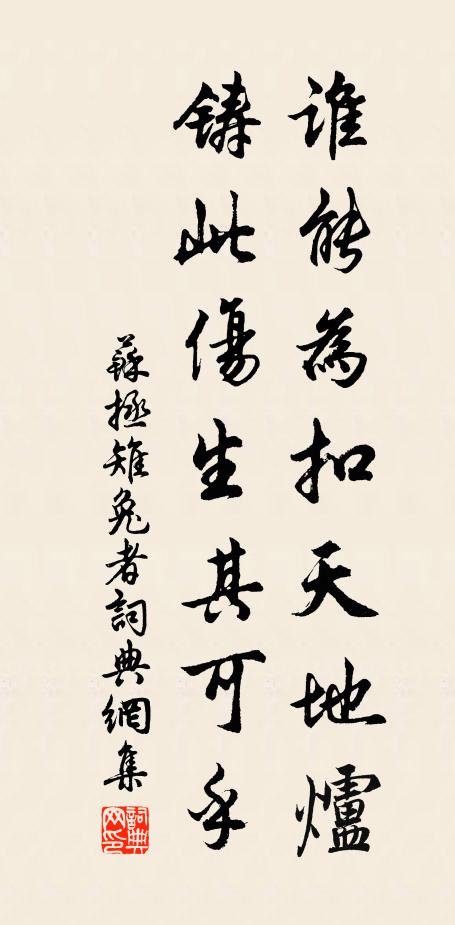 誰能為扣天地爐
鑄此傷生其可乎
蘇拯雉兔者詞典網集
詞典
网印